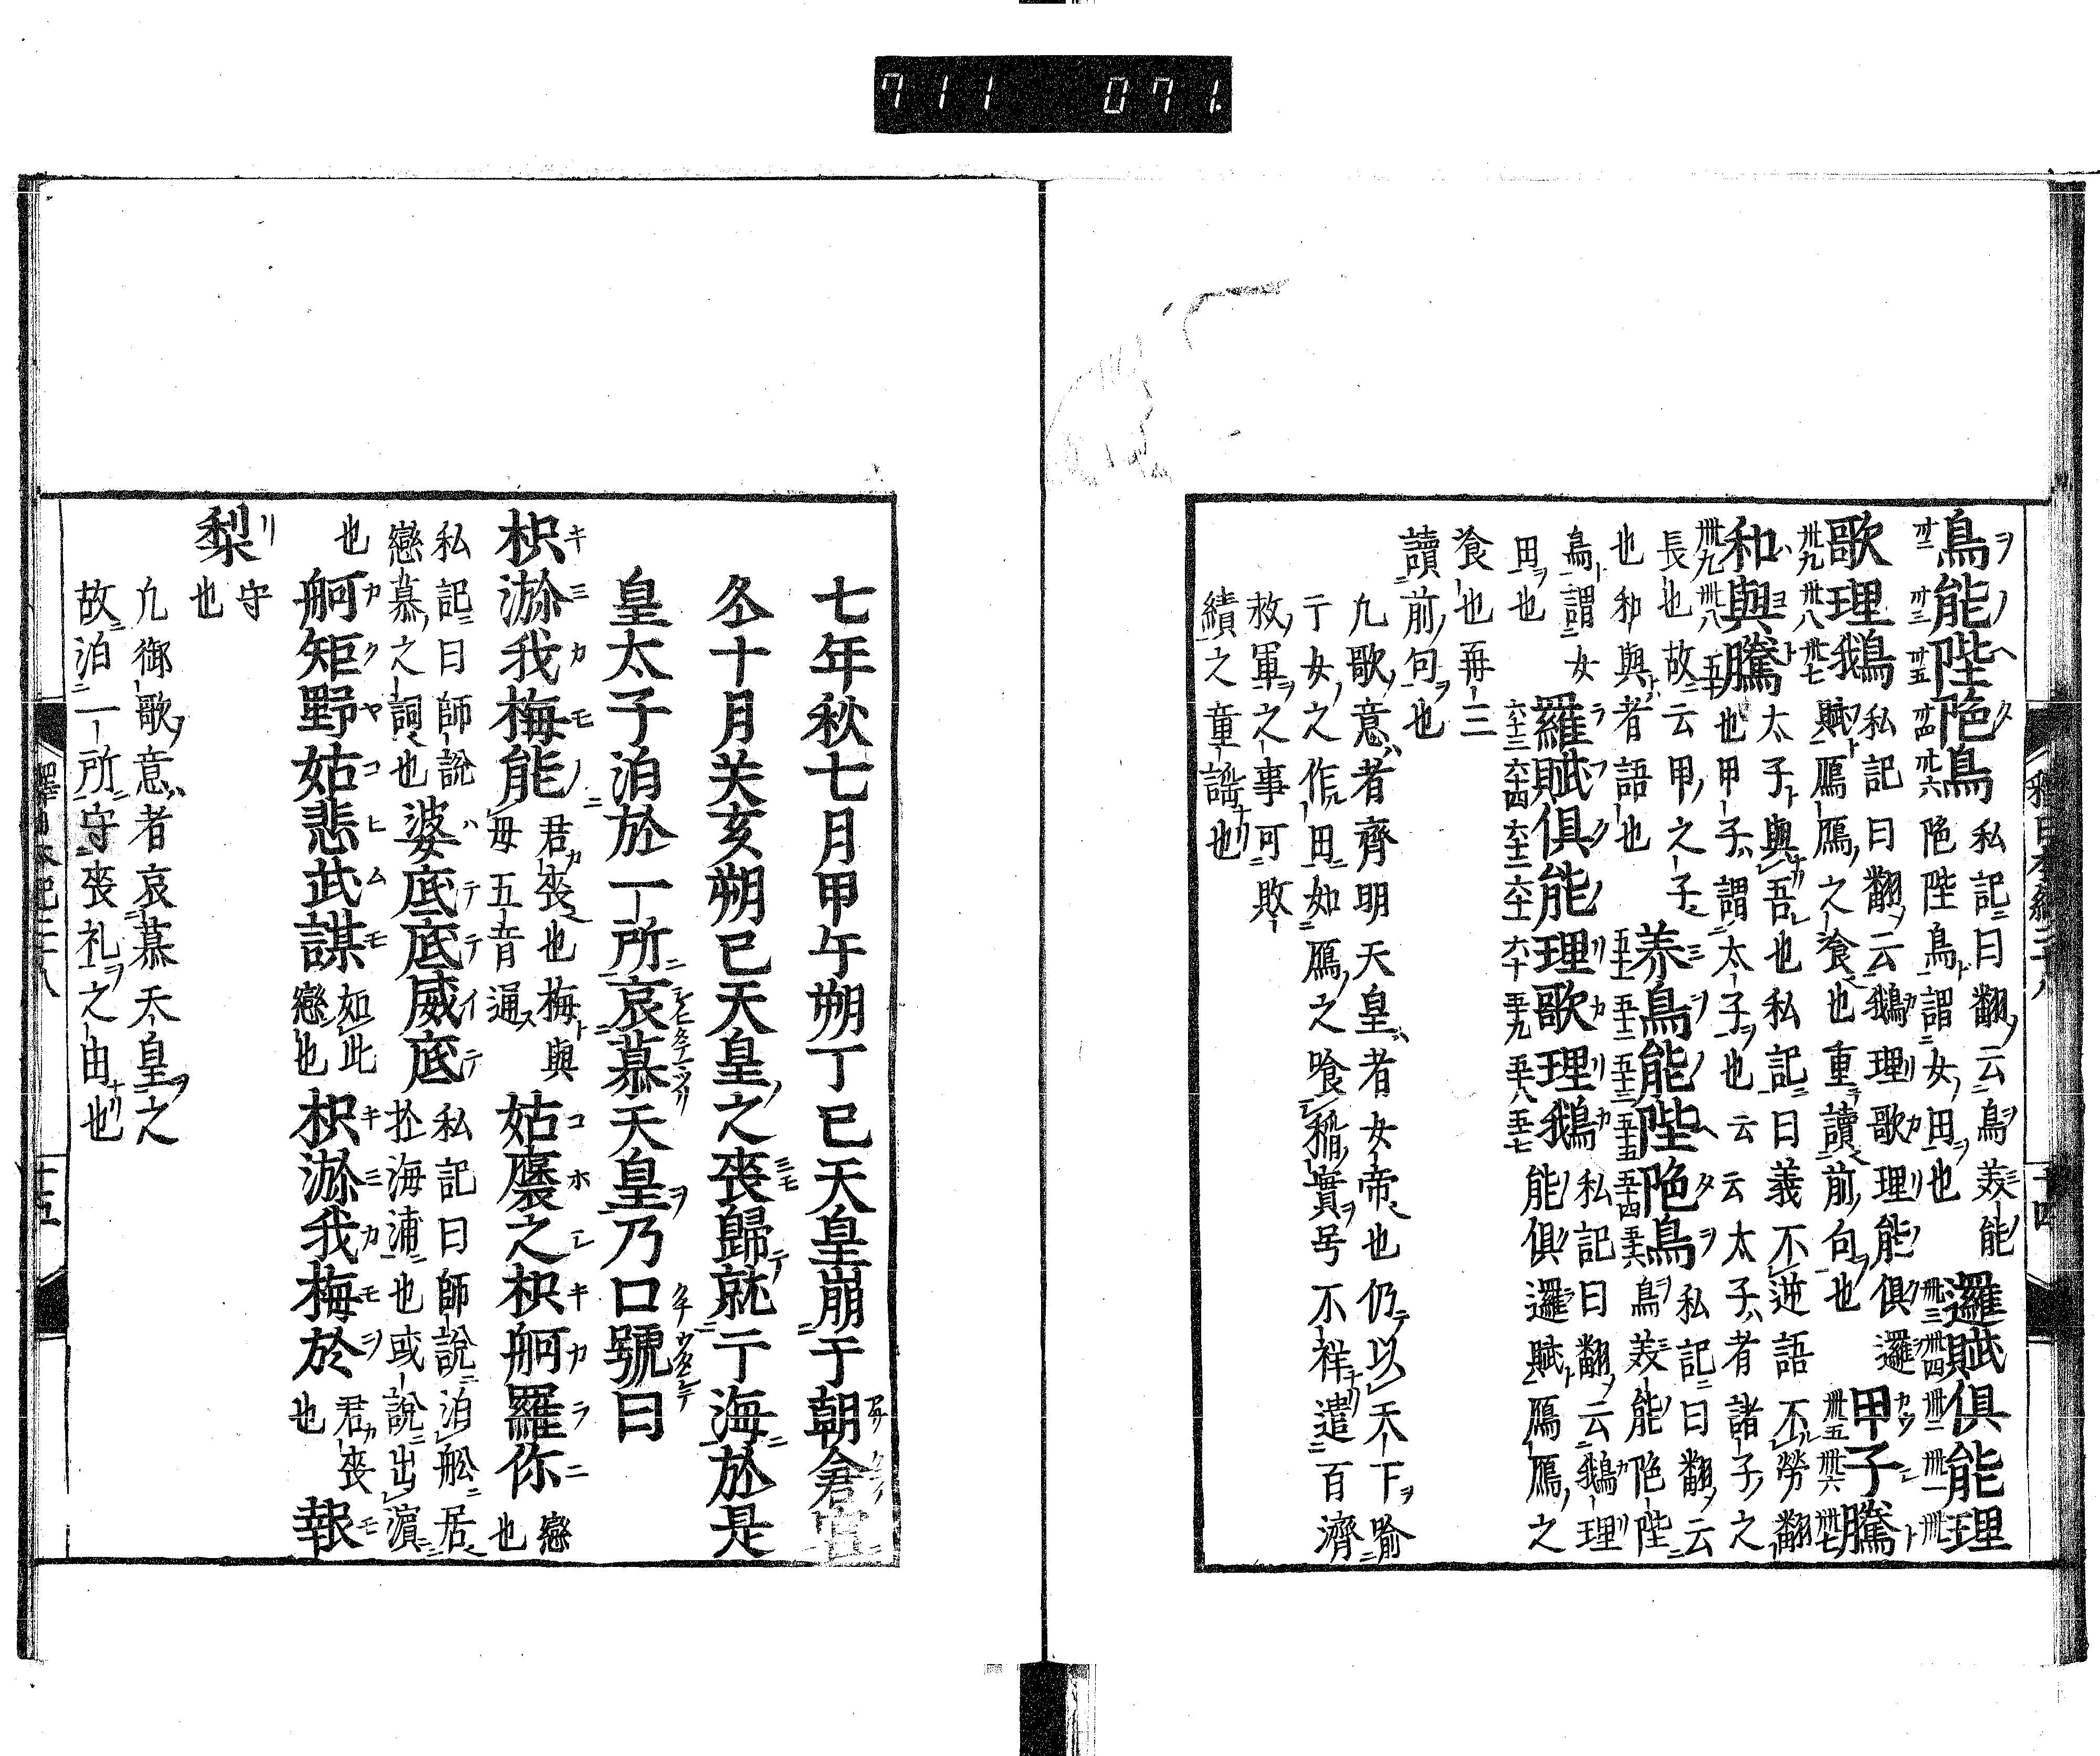 711 071
鳥能陛陁鳥 私記曰翻云鳥美能
陁陛鳥謂女田也 邏賦倶能理
歌理鵝 私記曰翻云鵝理歌理能倶邏
賦鴈鴈之飡也重讀前句也 甲子騰
和與騰 太子與吾也私記曰義不逆語不勞翻
也甲子謂太子也云云太子者諸子之
長也故云甲之子
也和與者語也 美鳥能陛陁鳥 私記曰翻云
鳥美能陁陛
鳥謂女
田也 羅賦倶能理歌理鵝 私記曰翻云鵝理
能倶邏賦鴈鴈之
飡也再三
讀前句也
九歌意者齊明天皇者女帝也仍以天下喩
于女之作田如鴈之喰稲實号不祥遣百濟
救軍之事可敗
績之童謡也
釋日本紀二十八
十四
七年秋七月甲午朔丁巳天皇崩于朝倉宮
冬十月癸亥朔己天皇之喪歸就于海於是
皇太子泊於一所哀慕天皇乃口號曰
枳瀰我梅能 君喪也梅與
毋五音通 姑裒之枳舸羅你 戀
也
私記曰師說
戀慕之詞也 婆底底威底 私記曰師說泊舩居
於海浦也或說出濵
也 舸矩野姑悲武謀 如此
戀也 枳瀰我梅於 君喪
也 報
梨 守
也
九御歌意者哀慕天皇之
故泊一所守喪礼之由也
十五